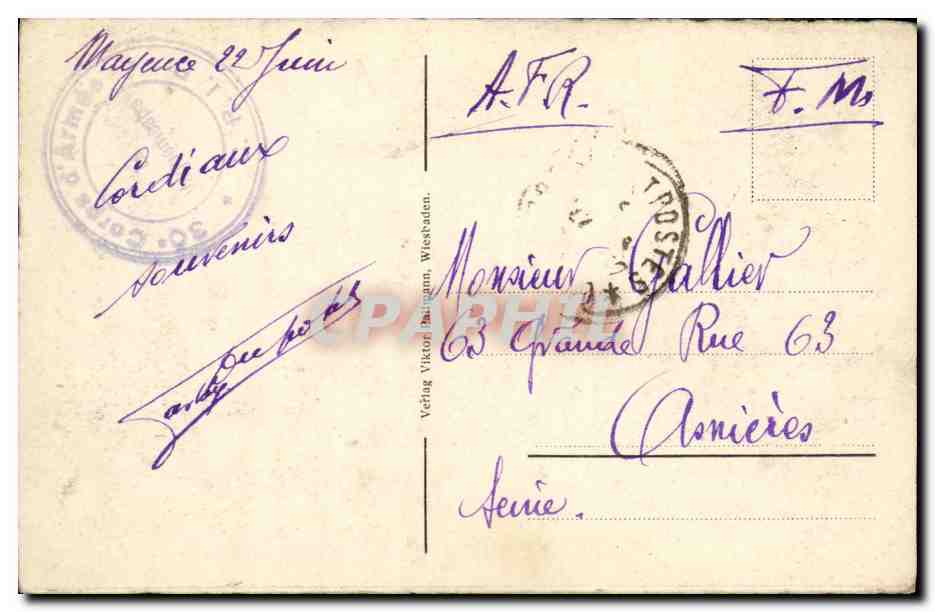 Mayence 22 Juin
Cordiaux
souvenirs
30e Corps d'Armée
Verlag Viktor Pallmann, Wiesbaden.
A.F.R.
F. M.
POSTES
Monsieur Gallier
63 Grande Rue 63
Asnières
Seine.
CPAPHIL